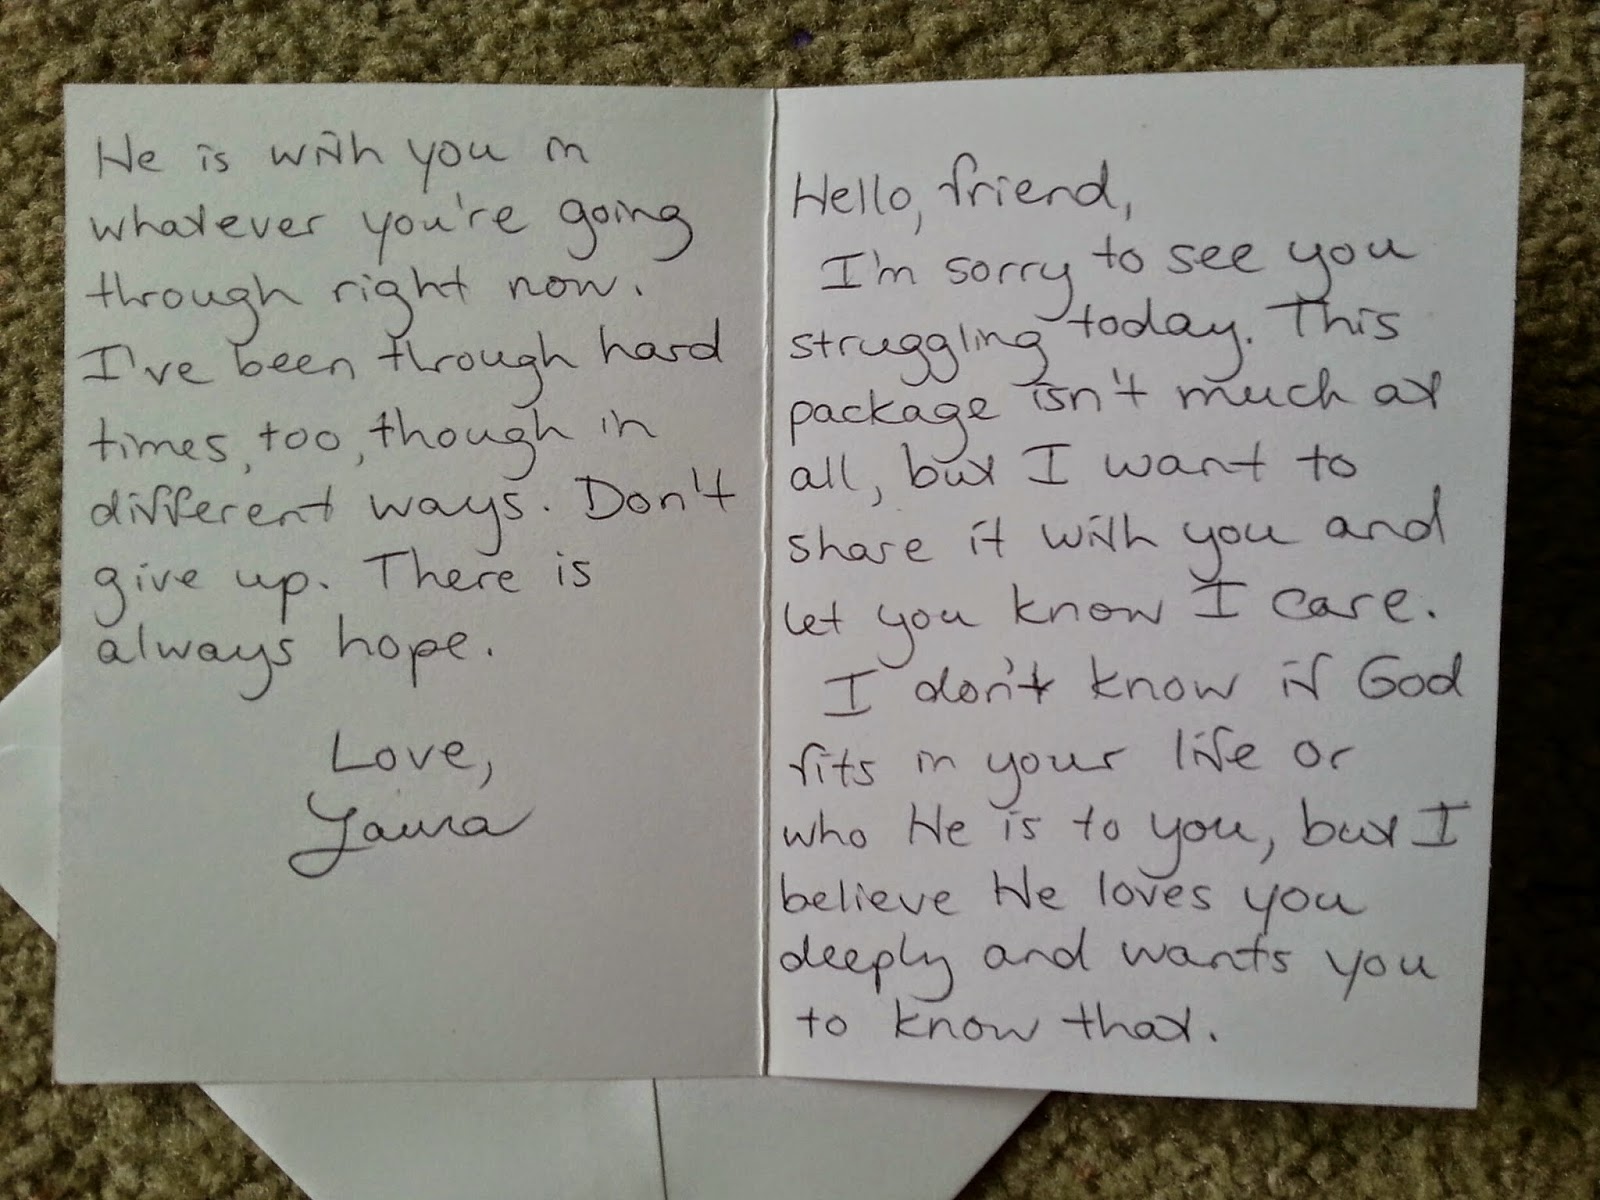 Hello, friend,
I'm sorry to see you
struggling today. This
package isn't much at
all, but I want to
share it with you and
let you know I care.
I don't know if God
fits in your life or
who He is to you, but I
believe He loves you
deeply and wants you
to know that.
He is with you in
whatever you're going
through right now.
I've been through hard
times, too, though in
different ways. Don't
give up. There is
always hope.
Love,
Laura